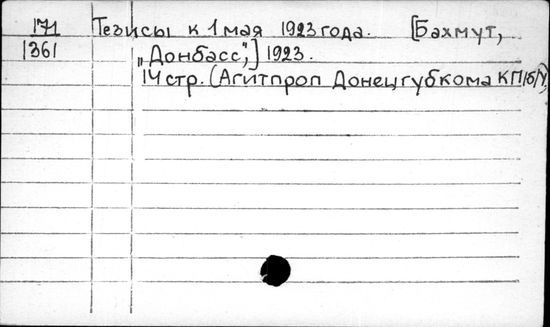 171 Тезисы к 1 мая 1923 года. [Бахмут,
1361 „Донбасс",] 1923.
14 стр. (Агитпроп Донецгубкома КП/б/У)